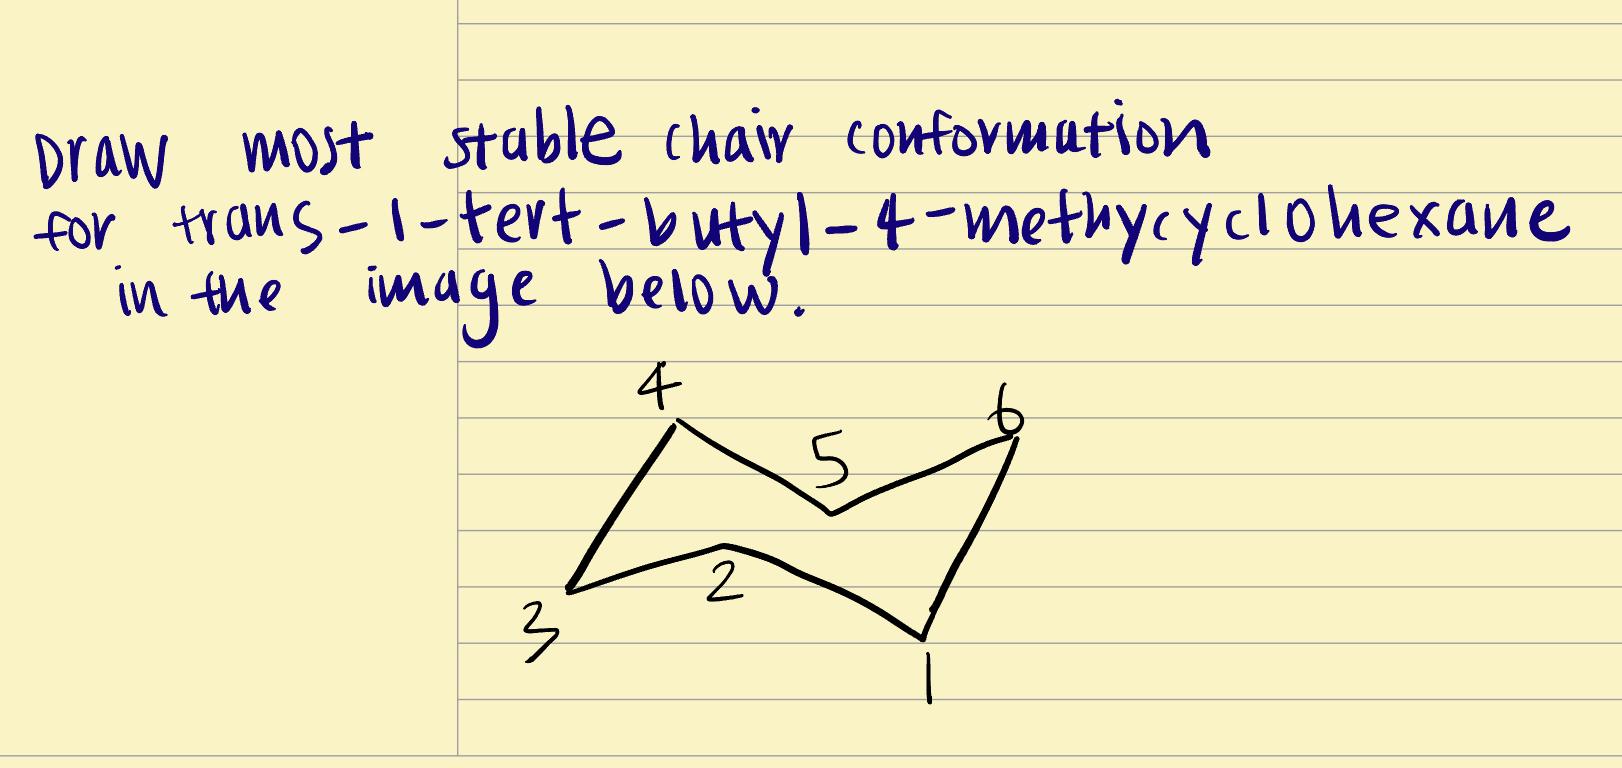 Draw most stable chair conformation
for trans-1-tert-butyl-4-methycyclohexane
in the image below.
4
6
5
2
3
1